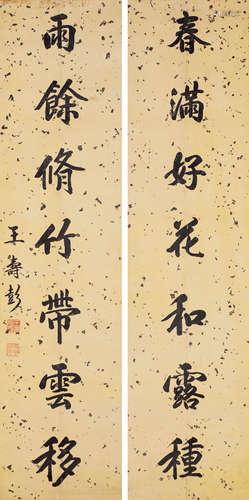 春滿好花和露種
雨餘脩竹帶雲移
王壽彭